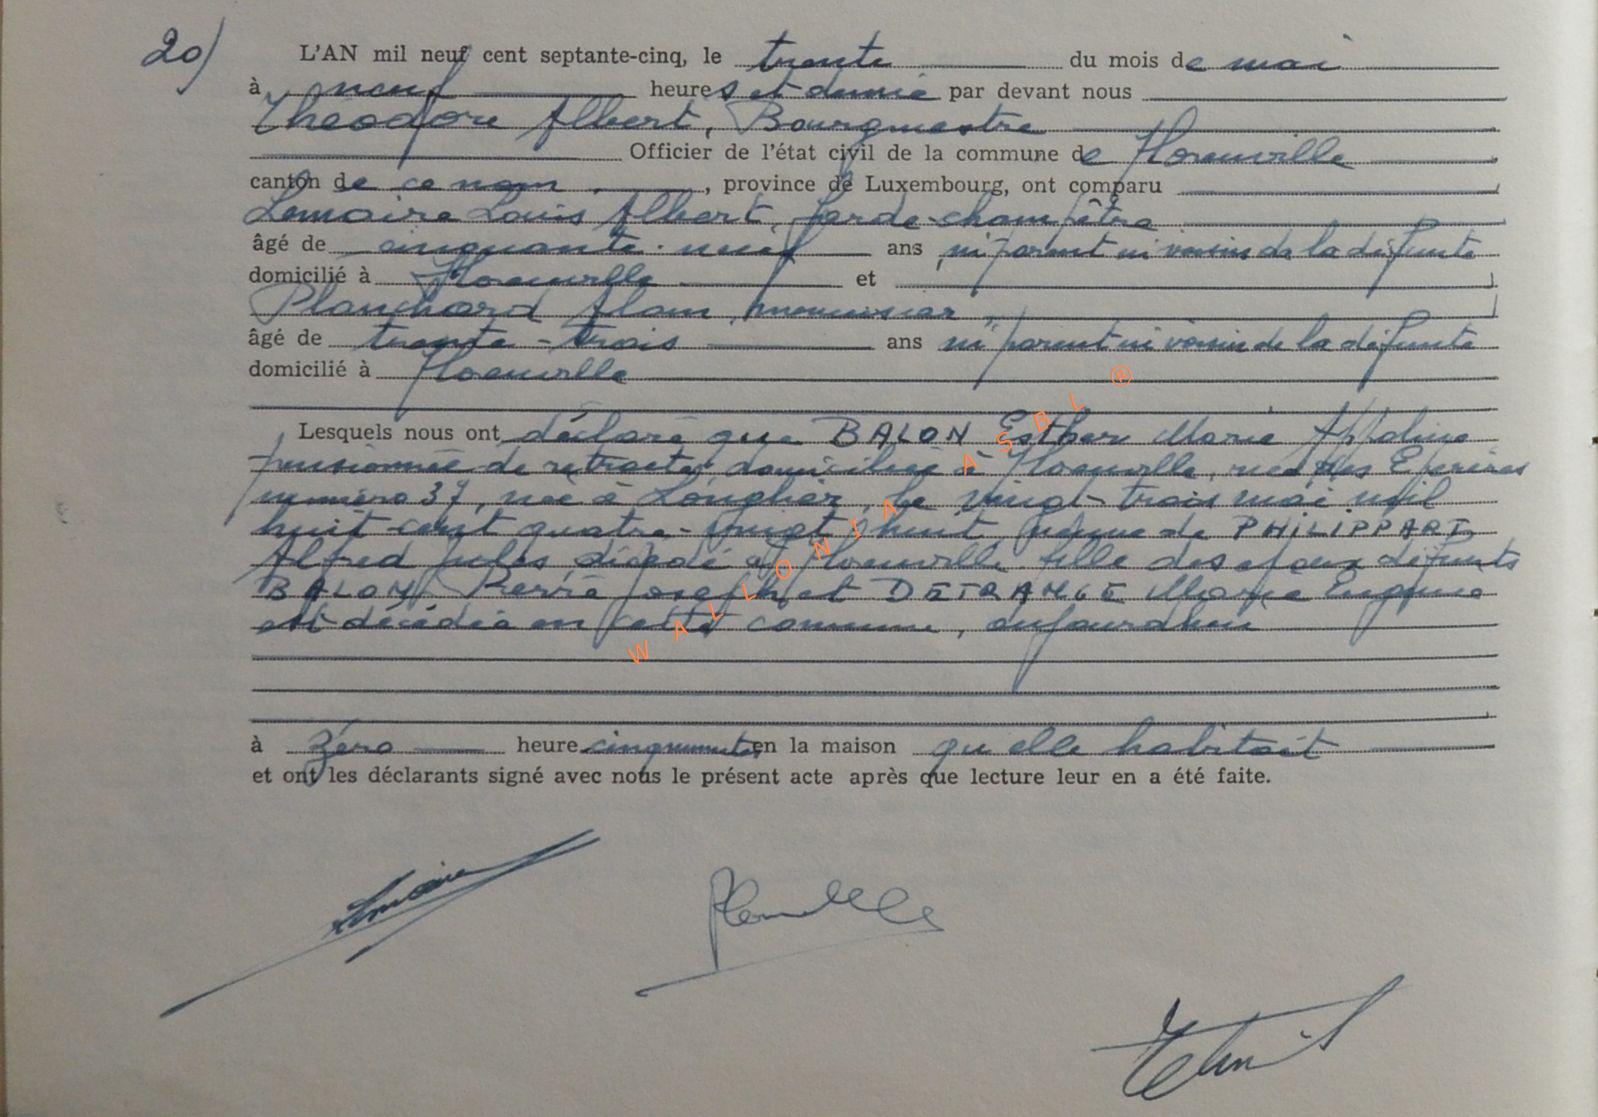 20)
L'AN mil neuf cent septante-cinq, le trente du mois de mai
à neuf heures et demie par devant nous
Théodore Albert, Bourgmestre
Officier de l'état civil de la commune de Florenville
canton de ce nom, province de Luxembourg, ont comparu
Lemaire Louis Albert, garde-champêtre
âgé de cinquante-neuf ans, ni parent ni voisin de la défunte
domicilié à Florenville et
Planchard Alain, menuisier,
âgé de trente-trois ans ni parent ni voisin de la défunte
domicilié à Florenville
Lesquels nous ont déclaré que BALON Esther Marie Appoline
pensionnée de retraite, domiciliée à Florenville, rue des Epicéas
numéro 37, née à Longlier, le vingt-trois mai mil
huit-cent quatre-vingt huit, veuve de PHILIPPART
Alfred Jules, décédé à Florenville, fille des époux défunts
BALON Pierre Joseph et DETRANGE Marie Eugénie
est décédée en cette commune, aujourdhui
à zéro heure cinq minutes, en la maison qu'elle habitait
et ont les déclarants signé avec nous le présent acte après que lecture leur en a été faite.
WALLONIA ASBL ®
Lemaire